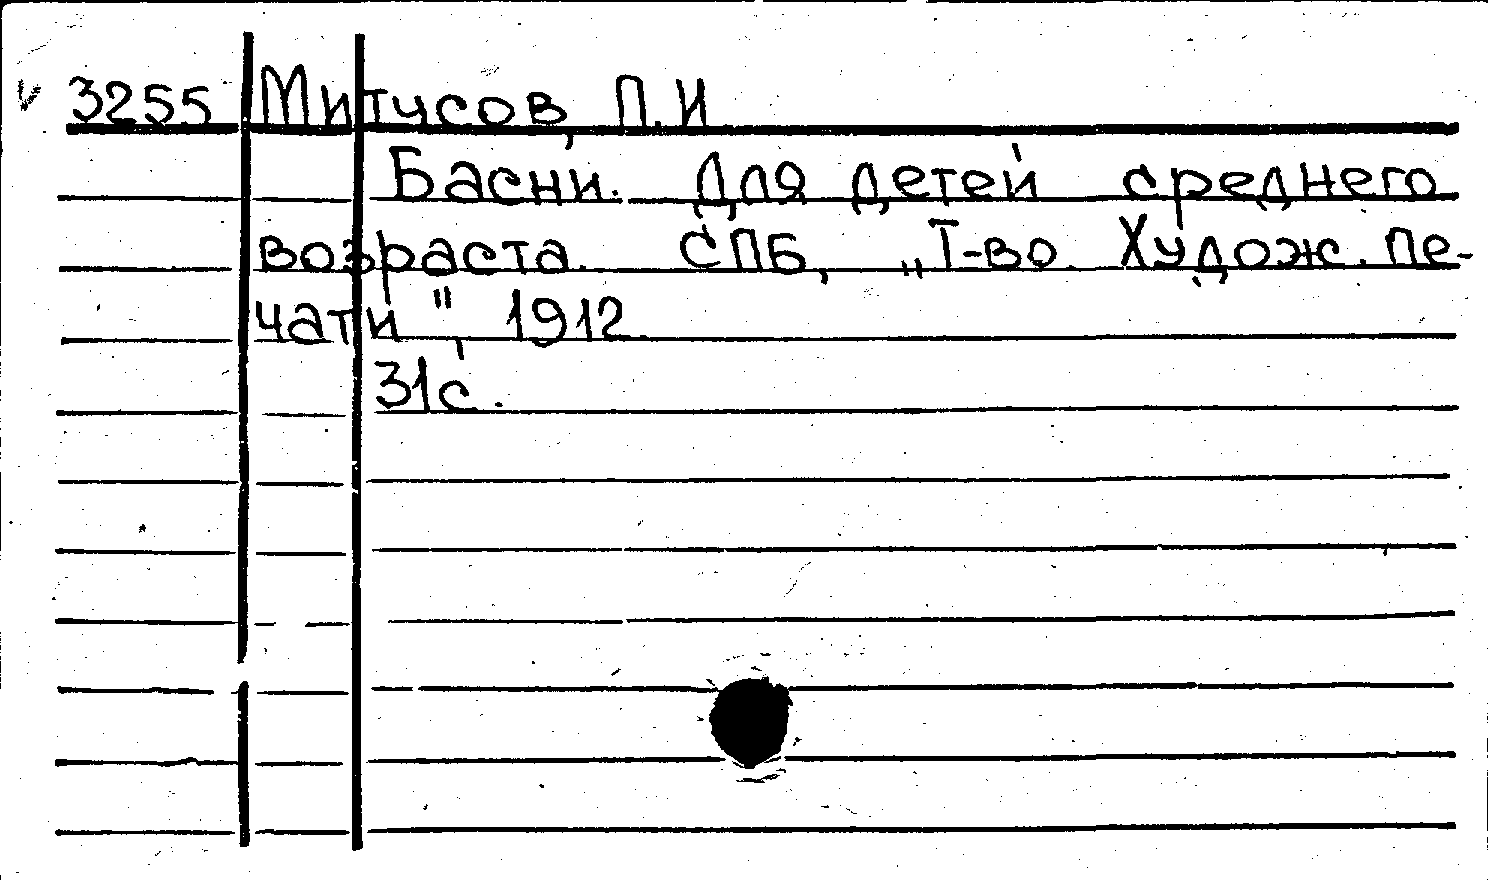 3255 Митусов, П.И
Басни. Для детей среднего
возраста. СПБ, „Т-во Худож. пе-
чати", 1912.
31с.